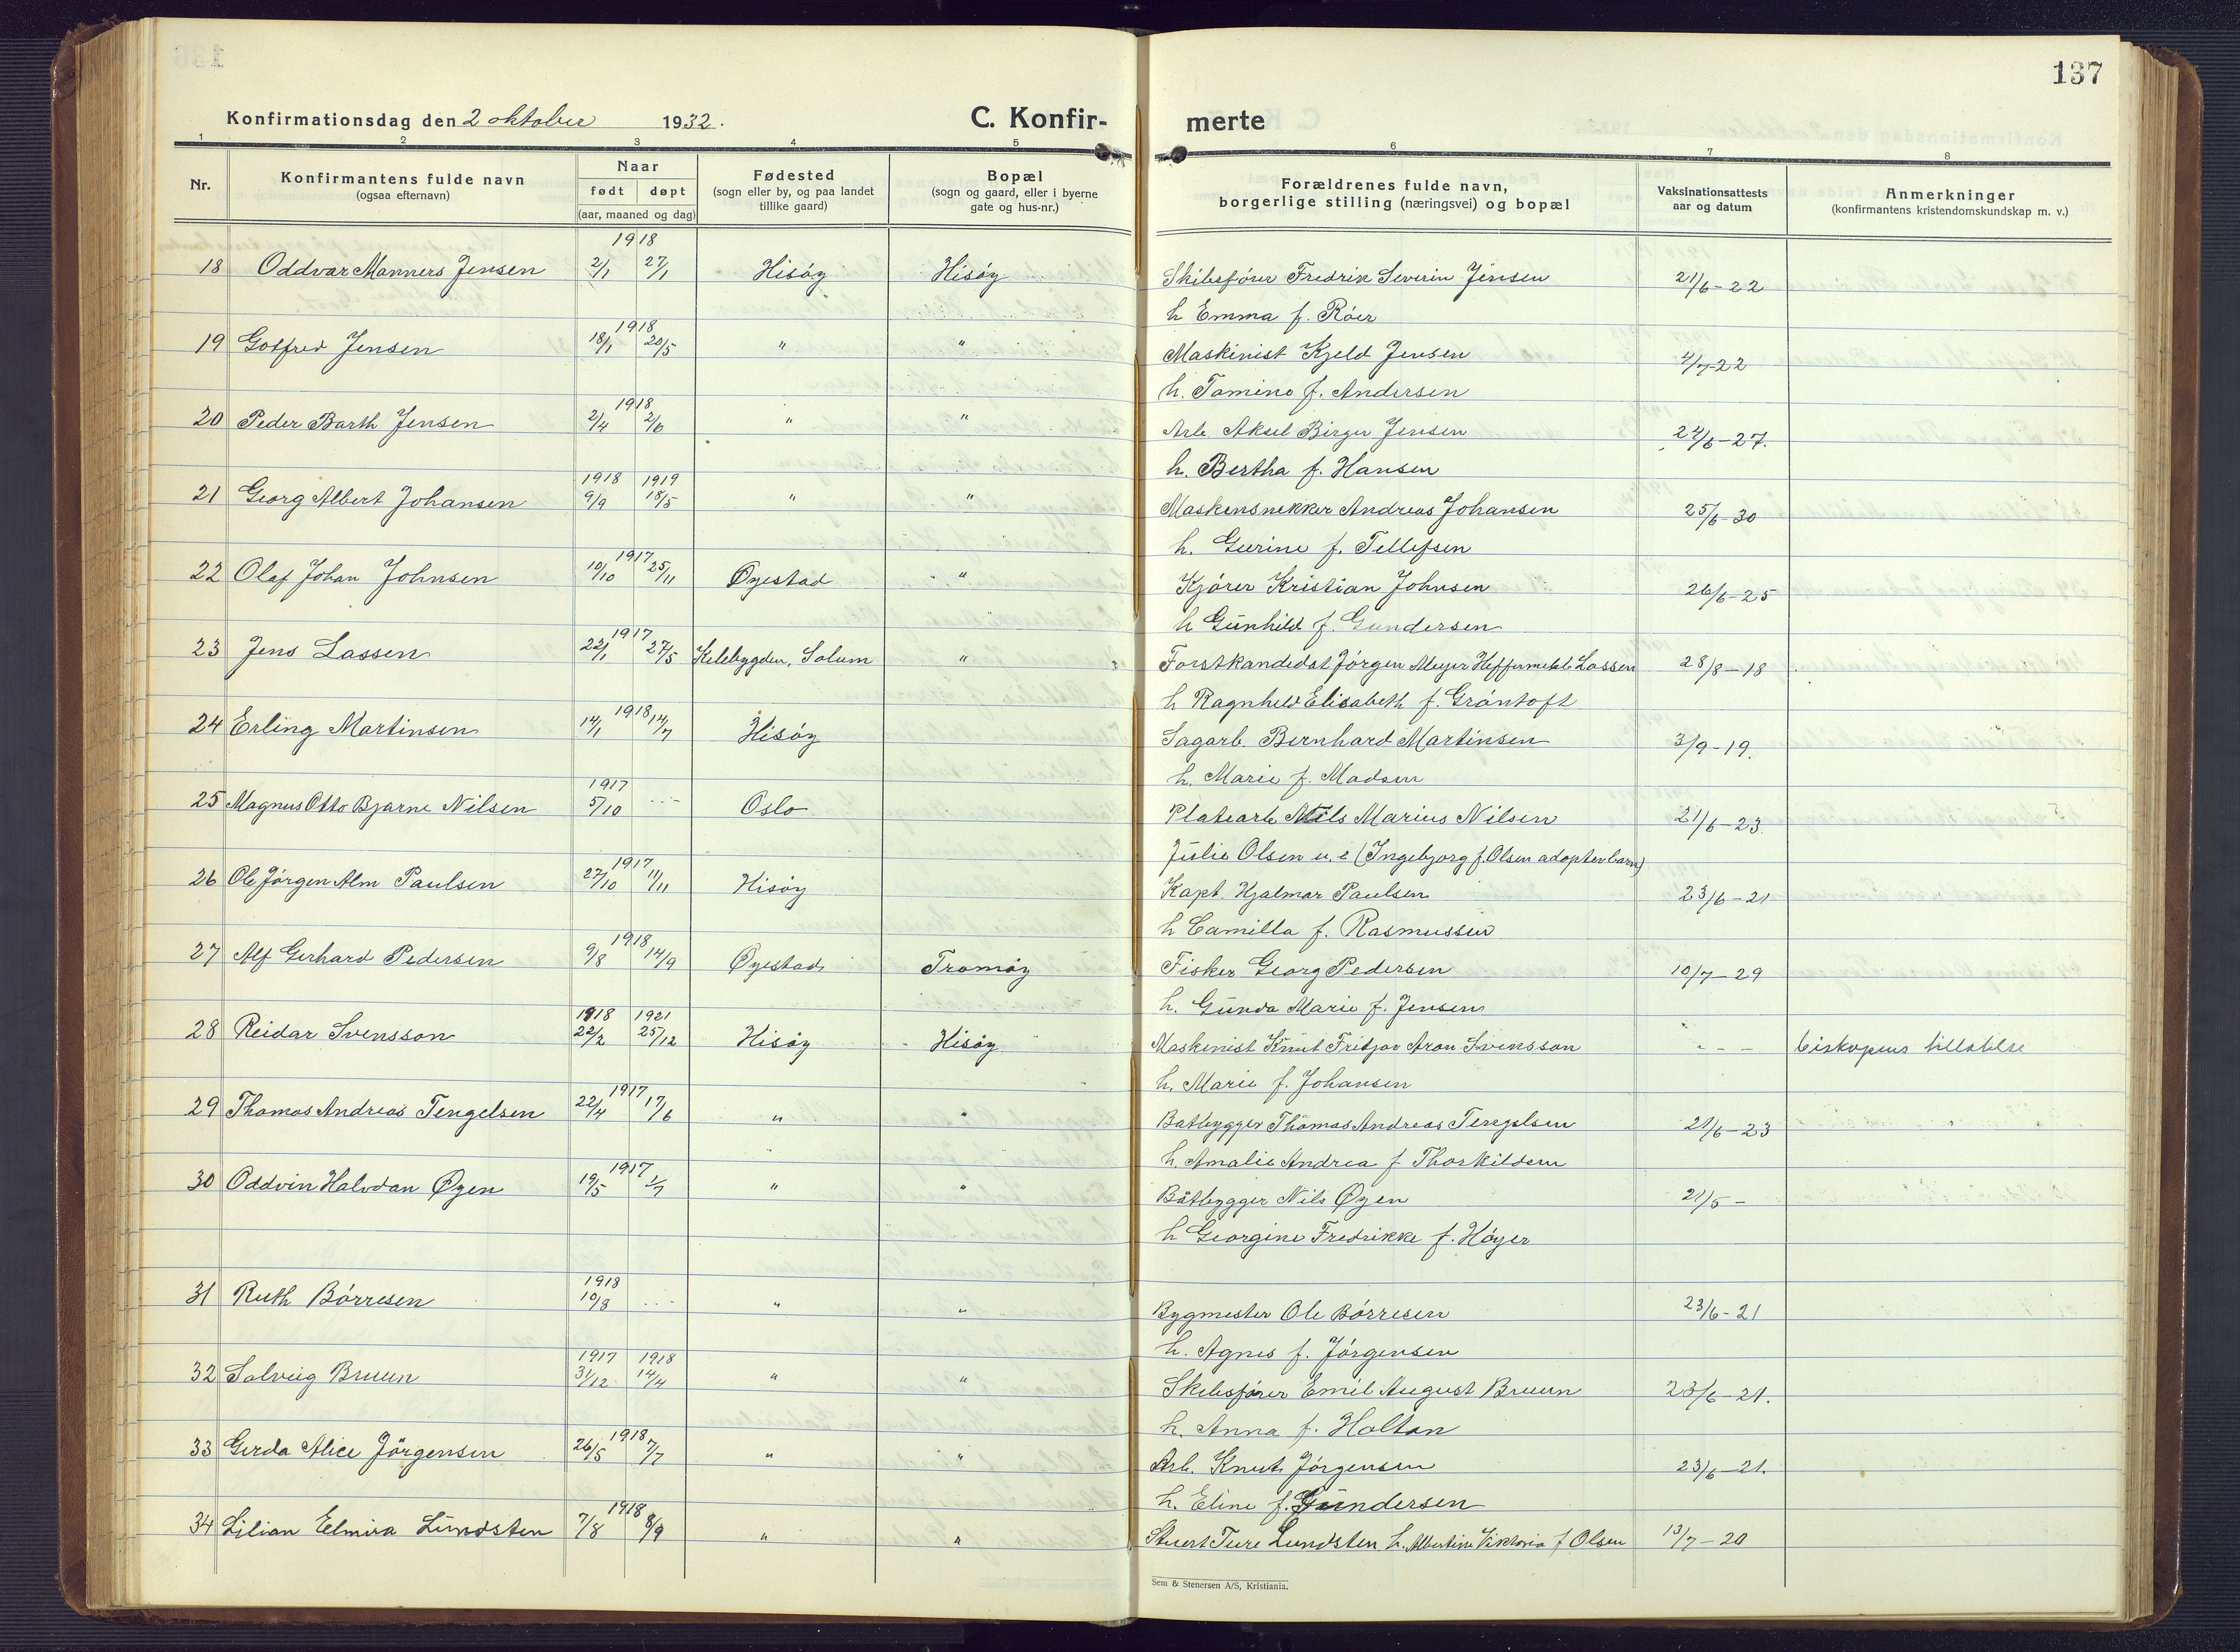 137
Konfirmationsdag den 2 oktober 1932.
C. Konfir-
merte
1 2 3 4 5 6 7 8
Nr.
Konfirmantens fulde navn
(ogsaa efternavn)
Naar
født døpt
(aar, maaned og dag)
Fødested
(sogn eller by, og paa landet
tillike gaard)
Bopæl
(sogn og gaard, eller i byerne
gate og hus-nr.)
Forældrenes fulde navn,
borgerlige stilling (næringsvei) og bopæl
Vaksinationsattests
aar og datum
Anmerkninger
(konfirmantens kristendomskundskap m. v.)
1918
18 Oddvar Manners Jensen 2/1 27/1 Hisøy Hisøy Skibsfører Fredrik Severin Jensen 21/6-22
h Emma f. Röer
1918
19 Gotfred Jensen 18/1 20/5 " " Maskinist Kjeld Jensen 4/7-22
h. Tomine f. Andersen
1918
20 Peder Barth Jensen 2/4 2/6 " " Arb Aksel Birger Jensen 24/6-27.
h. Bertha f. Hansen
1918 1919
21 Georg Albert Johansen 9/9 18/5 " " Maskinsnekker Andreas Johansen 25/6-30
h. Gurine f. Tellefsen
1917
22 Olaf Johan Johnsen 10/10 25/11 Øyestad " Kjører Kristian Johnsen 26/6-25
h Gunhild f. Gundersen
1917
23 Jens Lassen 22/1 27/5 Kilebygden, Solum " Forstkandidat Jørgen Meyer Lassen 28/8-18
h Ragnhild Elisabeth f. Gröntoft
1918
24 Erling Martinsen 14/1 14/7 Hisøy Sagarb. Bernhard Martinsen 3/9-19.
h. Marie f. Madsen
1917
25 Magnus Otto Bjarne Nilsen 5/10 Oslo Platearb Nils Marius Nilsen 21/6-23.
Julie Olsen u. e (Ingebjorg f. Olsen adoptivbarn)
1917
26 Ole Jørgen Alm Paulsen 27/10 11/11 Hisøy Kapt. Hjalmar Paulsen 23/6-21
h Camilla f. Rasmussen
1918
27 Alf Gerhard Pedersen 9/8 14/9 Øyestad Tromøy Fisker Georg Pedersen 10/7-29
h. Gunda Marie f. Jensen
1918 1921
28 Reidar Svensson 22/2 25/12 Hisøy Hisøy Maskinist Knut Fritjov Aron Svensson - - - biskopens tillatelse
h. Marie f. Johansen
1917
29 Thomas Andreas Tengelsen 22/4 17/6 " " Båtbygger Thomas Andreas Tengelsen 21/6-23
h. Amalie Andrea f Thorkildsen
1917
30 Oddvin Halvdan Øyen 19/5 1/7 " " Båtbygger Nils Øyen 21/5 -
h Georgine Fredrikke f. Höyer
1918
31 Ruth Börresen 10/8 " " Bygmester Ole Börresen 23/6-21
h. Agnes f. Jörgensen
1917 1918
32 Solveig Bruun 31/12 14/4 " " Skibsfører Emil August Bruun 23/6-21.
h. Anna f. Holtan
1918
33 Gerda Alice Jörgensen 26/5 7/7 " " Arb. Knut Jörgensen 23/6-21.
h. Eline f. Gundersen
1918
34 Lilian Elmira Lundsten 7/8 8/9 " " Stuert Ture Lundsten h. Albertine Viktoria f Olsen 13/7-20
Sem & Stenersen A/S, Kristiania.